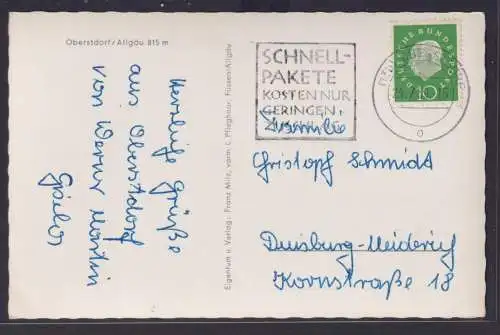 Oberstdorf/Allgäu 815 m
Herzliche Grüße
aus Oberstdorf
von Werner Martin
Eigentum u. Verlag: Franz Milz, vorm. L. Pfleghaar, Füssen/Allgäu
SCHNELL-
PAKETE
KOSTEN NUR
GERINGEN
DEUTSCHE BUNDESPOST
10
Familie
Christoph Schmidt
Duisburg-Meiderich
Kornstraße 18